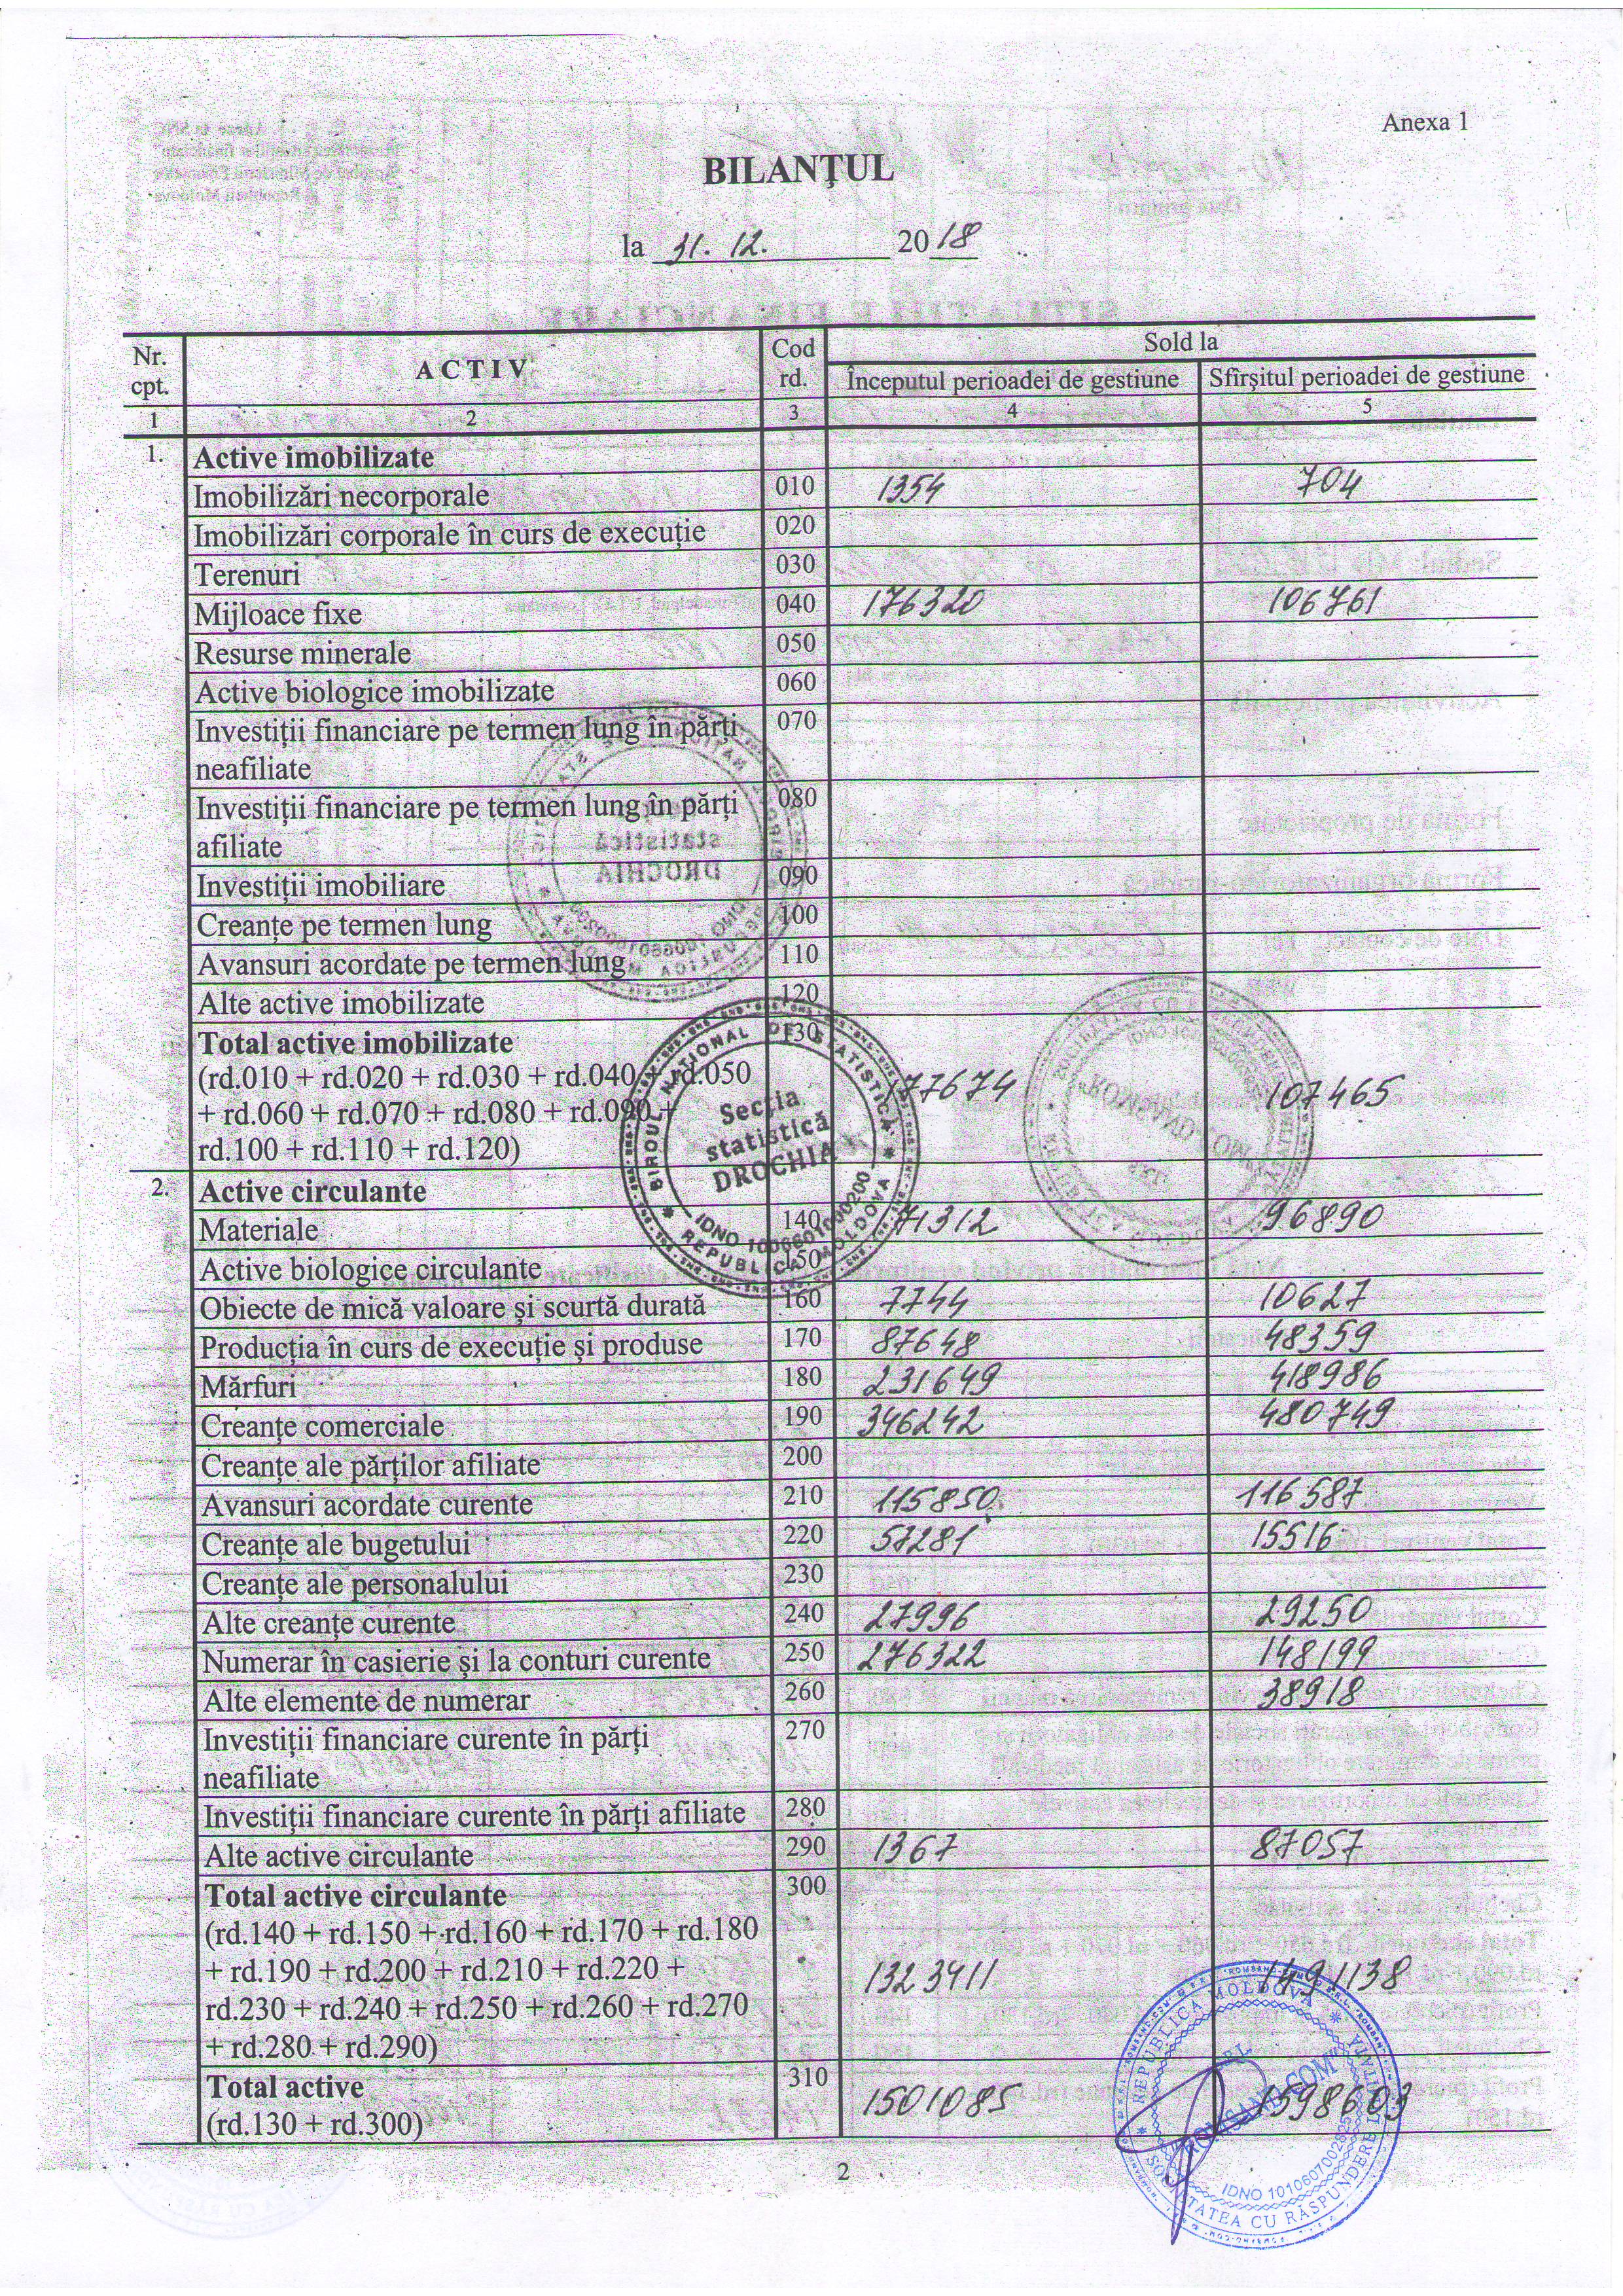 Anexa 1
BILANȚUL
la 31. 12. 2018
Nr. cpt. A C T I V Cod rd. Sold la
Începutul perioadei de gestiune Sfîrșitul perioadei de gestiune
1 2 3 4 5
1. Active imobilizate
Imobilizări necorporale 010 1354 704
Imobilizări corporale în curs de execuție 020
Terenuri 030
Mijloace fixe 040 176320 106761
Resurse minerale 050
Active biologice imobilizate 060
Investiții financiare pe termen lung în părți 070
neafiliate
Investiții financiare pe termen lung în părți 080
afiliate
Investiții imobiliare 090
Creanțe pe termen lung 100
Avansuri acordate pe termen lung 110
Alte active imobilizate 120
Total active imobilizate 130
(rd.010 + rd.020 + rd.030 + rd.040 + rd.050 177674 107465
+ rd.060 + rd.070 + rd.080 + rd.090 +
rd.100 + rd.110 + rd.120)
BIROUL NAȚIONAL DE STATISTICĂ
Secția
statistică
DROCHIA
IDNO 1006601000200
REPUBLICA MOLDOVA
2. Active circulante
Materiale 140 71312 96890
Active biologice circulante 150
Obiecte de mică valoare și scurtă durată 160 7744 10627
Producția în curs de execuție și produse 170 87648 48359
Mărfuri 180 231649 418986
Creanțe comerciale 190 346242 480749
Creanțe ale părților afiliate 200
Avansuri acordate curente 210 115850 116587
Creanțe ale bugetului 220 57281 15516
Creanțe ale personalului 230
Alte creanțe curente 240 27996 29250
Numerar în casierie și la conturi curente 250 276322 148199
Alte elemente de numerar 260 38918
Investiții financiare curente în părți 270
neafiliate
Investiții financiare curente în părți afiliate 280
Alte active circulante 290 1367 87057
Total active circulante 300
(rd.140 + rd.150 + rd.160 + rd.170 + rd.180
+ rd.190 + rd.200 + rd.210 + rd.220 + 1323411 1491138
rd.230 + rd.240 + rd.250 + rd.260 + rd.270
+ rd.280 + rd.290)
Total active 310 1501085 1598603
(rd.130 + rd.300)
REPUBLICA MOLDOVA
SRL
"ROMSAND-COM"
SOCIETATEA CU RĂSPUNDERE LIMITATĂ
2